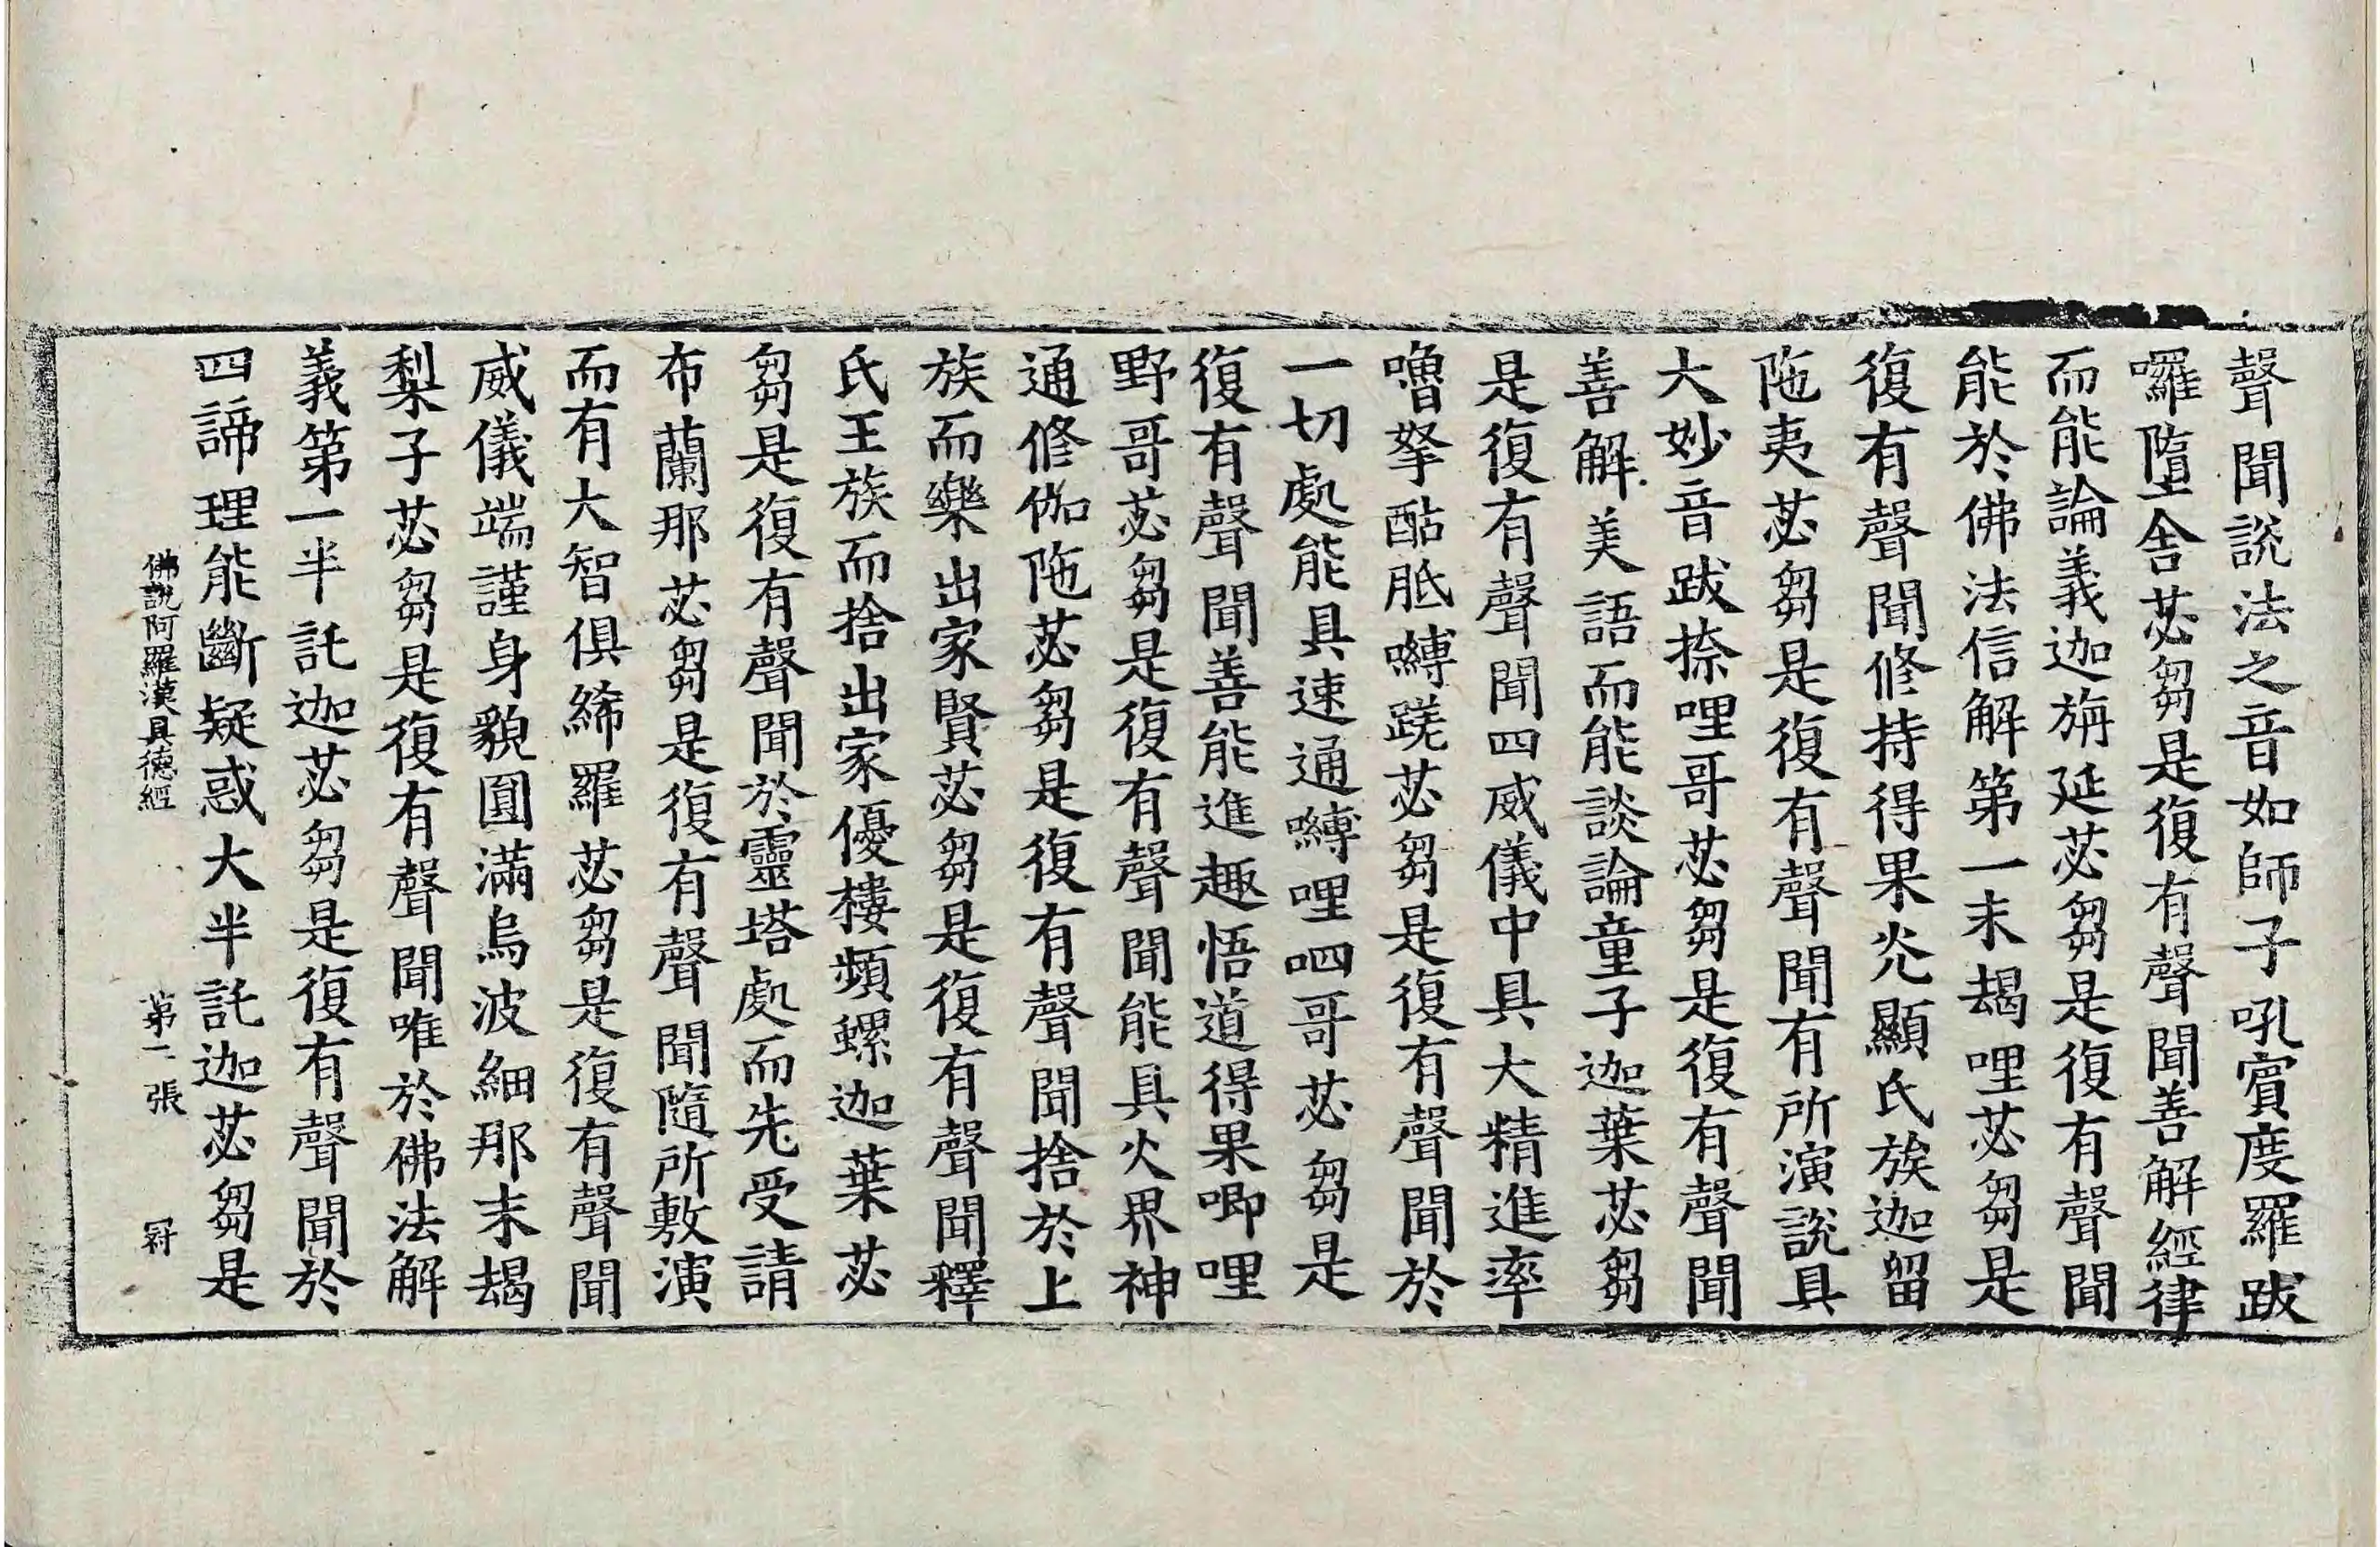 聲聞說法之音如師子吼賓度羅跋
囉墮舍苾芻是復有聲聞善解經律
而能論義迦旃延苾芻是復有聲聞
能於佛法信解第一末朅哩苾芻是
復有聲聞修持得果光顯氏族迦留
陁夷苾芻是復有聲聞有所演說具
大妙音跋捺哩哥苾芻是復有聲聞
善解美語而能談論童子迦葉苾芻
是復有聲聞四威儀中具大精進率
嚕拏酤胝嚩蹉苾芻是復有聲聞於
一切處能具速通嚩哩呬哥苾芻是
復有聲聞善能進趣悟道得果唧哩
野哥苾芻是復有聲聞能具火界神
通修伽陁苾芻是復有聲聞捨於上
族而樂出家賢苾芻是復有聲聞釋
氏王族而捨出家優樓頻螺迦葉苾
芻是復有聲聞於靈塔處而先受請
布蘭那苾芻是復有聲聞隨所敷演
而有大智俱絺羅苾芻是復有聲聞
威儀端謹身貌圓滿烏波細那末朅
梨子苾芻是復有聲聞唯於佛法解
義第一半託迦苾芻是復有聲聞於
四諦理能斷疑惑大半託迦苾芻是
佛說阿羅漢具德經 第二張 冔